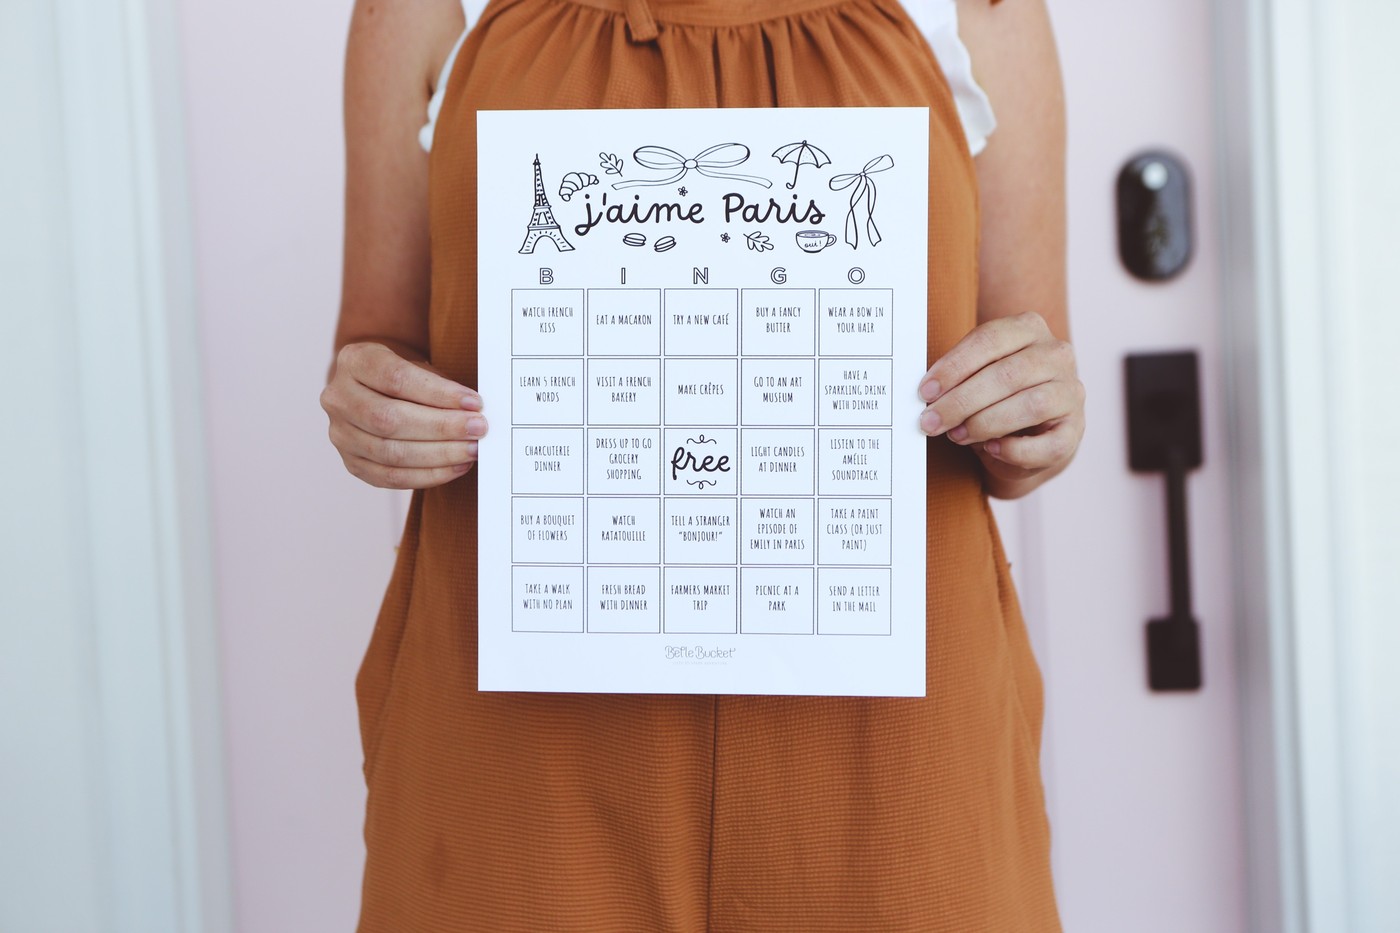 j'aime Paris
oui!
B I N G O
WATCH FRENCH
KISS
EAT A MACARON
TRY A NEW CAFÉ
BUY A FANCY
BUTTER
WEAR A BOW IN
YOUR HAIR
LEARN 5 FRENCH
WORDS
VISIT A FRENCH
BAKERY
MAKE CRÊPES
GO TO AN ART
MUSEUM
HAVE A
SPARKLING DRINK
WITH DINNER
CHARCUTERIE
DINNER
DRESS UP TO GO
GROCERY
SHOPPING
free
LIGHT CANDLES
AT DINNER
LISTEN TO THE
AMÉLIE
SOUNDTRACK
BUY A BOUQUET
OF FLOWERS
WATCH
RATATOUILLE
TELL A STRANGER
"BONJOUR!"
WATCH AN
EPISODE OF
EMILY IN PARIS
TAKE A PAINT
CLASS (OR JUST
PAINT)
TAKE A WALK
WITH NO PLAN
FRESH BREAD
WITH DINNER
FARMERS MARKET
TRIP
PICNIC AT A
PARK
SEND A LETTER
IN THE MAIL
Belle Bucket